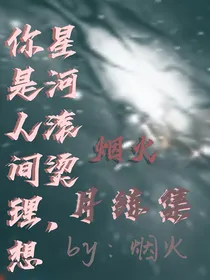 星河滚烫，
你是人间理想
烟火
月练集
by：烟火